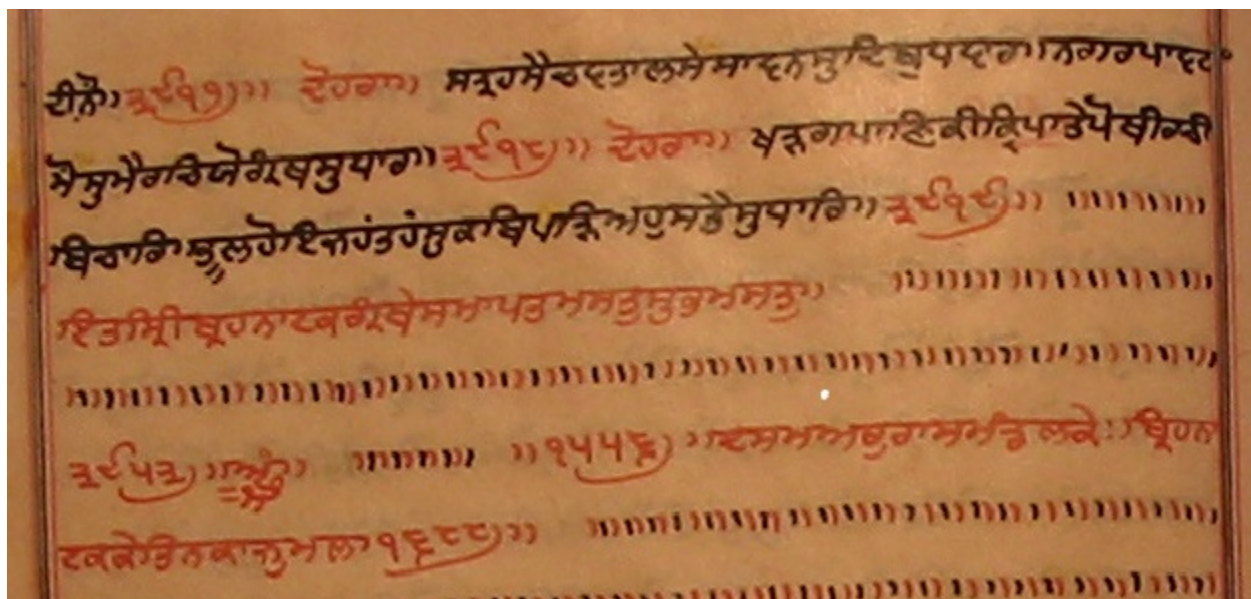 ਦੀਨੋ॥੩੯੧੭॥ ਦੋਹਰਾ॥ ਸਤ੍ਰਹਸੈਚਵਤਾਲਮੇਸਾਵਨਸੁਦਿਬੁਧਵਾਰ॥ਨਗਰਪਾਵਟਾ
ਮੋਸੁਮੈਰਚਿਯੋਗ੍ਰੰਥਸੁਧਾਰ॥੩੯੧੮॥ ਦੋਹਰਾ॥ ਖੜਗਪਾਣਿਕੀਕ੍ਰਿਪਾਤੇਪੋਥੀਰਚੀ
ਬਿਚਾਰਿ॥ਭੂਲਹੋਇਜਹੰਤਹੰਸੁਕਾਬਿਪੜਿਅਹੁਸਭੈਸੁਧਾਰਿ॥੩੯੧੯॥
ਇਤਸ੍ਰੀਬ੍ਰਹਨਾਟਕਗ੍ਰੰਥੇਸਮਾਪਤਮਸਤੁਸੁਭਮਸਤੁ॥
੩੯੫੩॥ ॥੧੫੫੬॥ਦਸਮਅਬੁਰਾਸਮੰਡਲਕੇ॥ਬ੍ਰਿਹਨ
ਟਕਕੇਤਿਨਕਾਜੁਮਲਾ੧੬੮੮॥